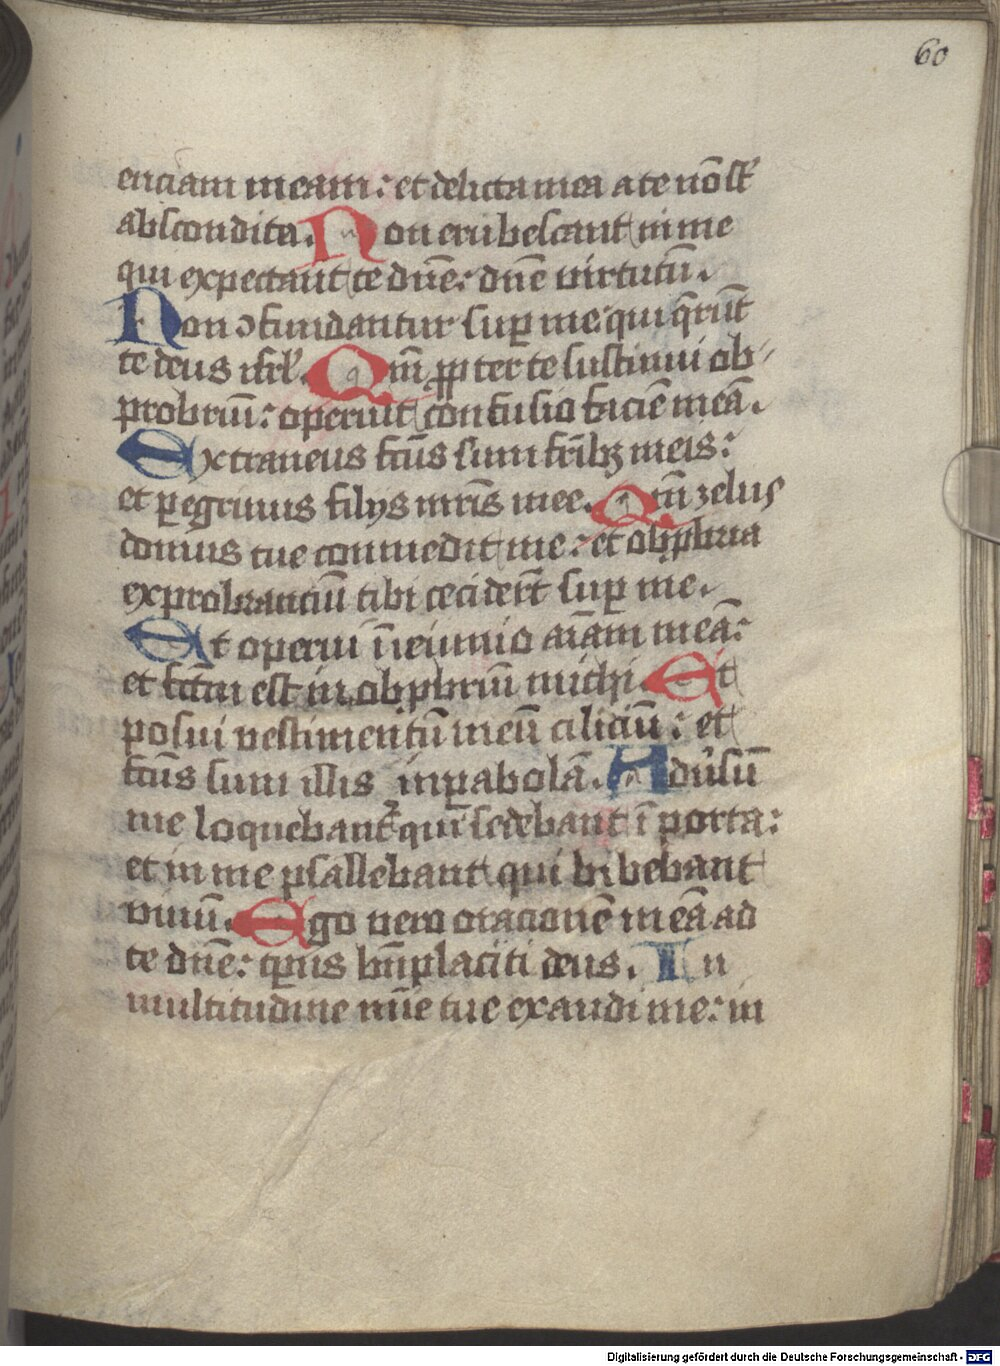 60
enciam meam : et delicta mea a te nō sūt
abscondita. Non erubescant in me
qui expectant te dn̄e : dn̄e virtutū.
Non ↄfundantur sup̱ me qui q̄rūt
te deus isrl̄. Qm̄ ꝓpter te sustinui ob
probriū : operuit confusio faciē meā.
Extraneus fc̄us sum fr̄ibꝫ meis :
et p̱egrinus filijs mr̄is mee. Qm̄ zelus
domus tue commedit me : et obꝓbria
exprobranciū tibi cecidert̄ sup̱ me.
Et operui ī ieiunio aīam meā :
et fc̄m est in obꝓbriū michi. Et
posui vestimentū meū ciliciū : et
fc̄us sum illis in p̱abolā. Adūsū
me loquebant᷑ qui sedebant ī porta :
et in me psallebant qui bibebant
vinū. Ego vero oracionē meā ad
te dn̄e : tp̄us bn̄placiti deus. In
multitudine mīe tue exaudi me : in
Digitalisierung gefördert durch die Deutsche Forschungsgemeinschaft - DFG